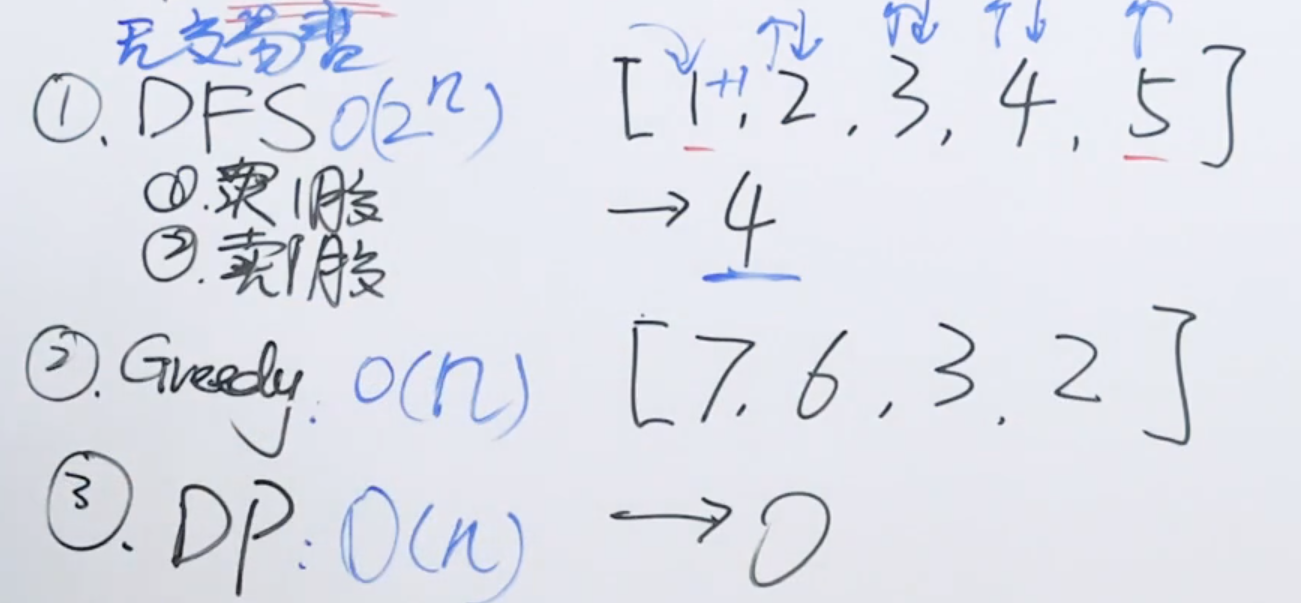 无交易费
①. DFS O(2ⁿ)
①. 买1股
②. 卖1股
②. Greedy: O(n)
③. DP: O(n)
[ 1, +1 2, 3, 4, 5 ]
→ 4
[ 7, 6, 3, 2 ]
→ 0